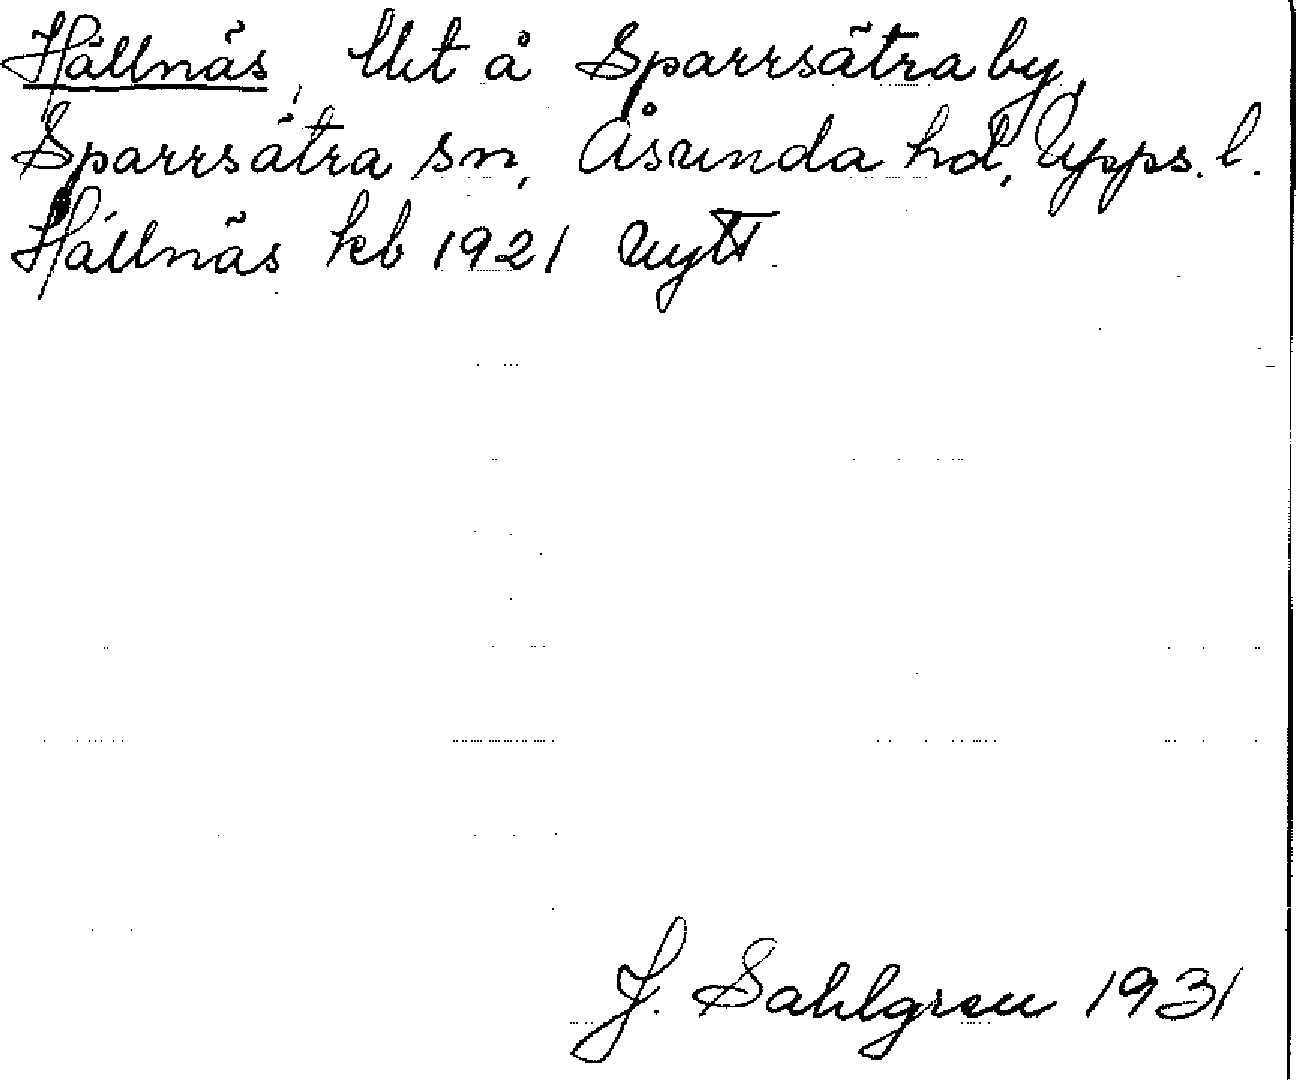 Hällnäs, Ut å Sparrsätra by,
Sparrsätra sn, Åsunda hd, Upps. l.
Hällnäs kb 1921 Uytt
J. Sahlgren 1931